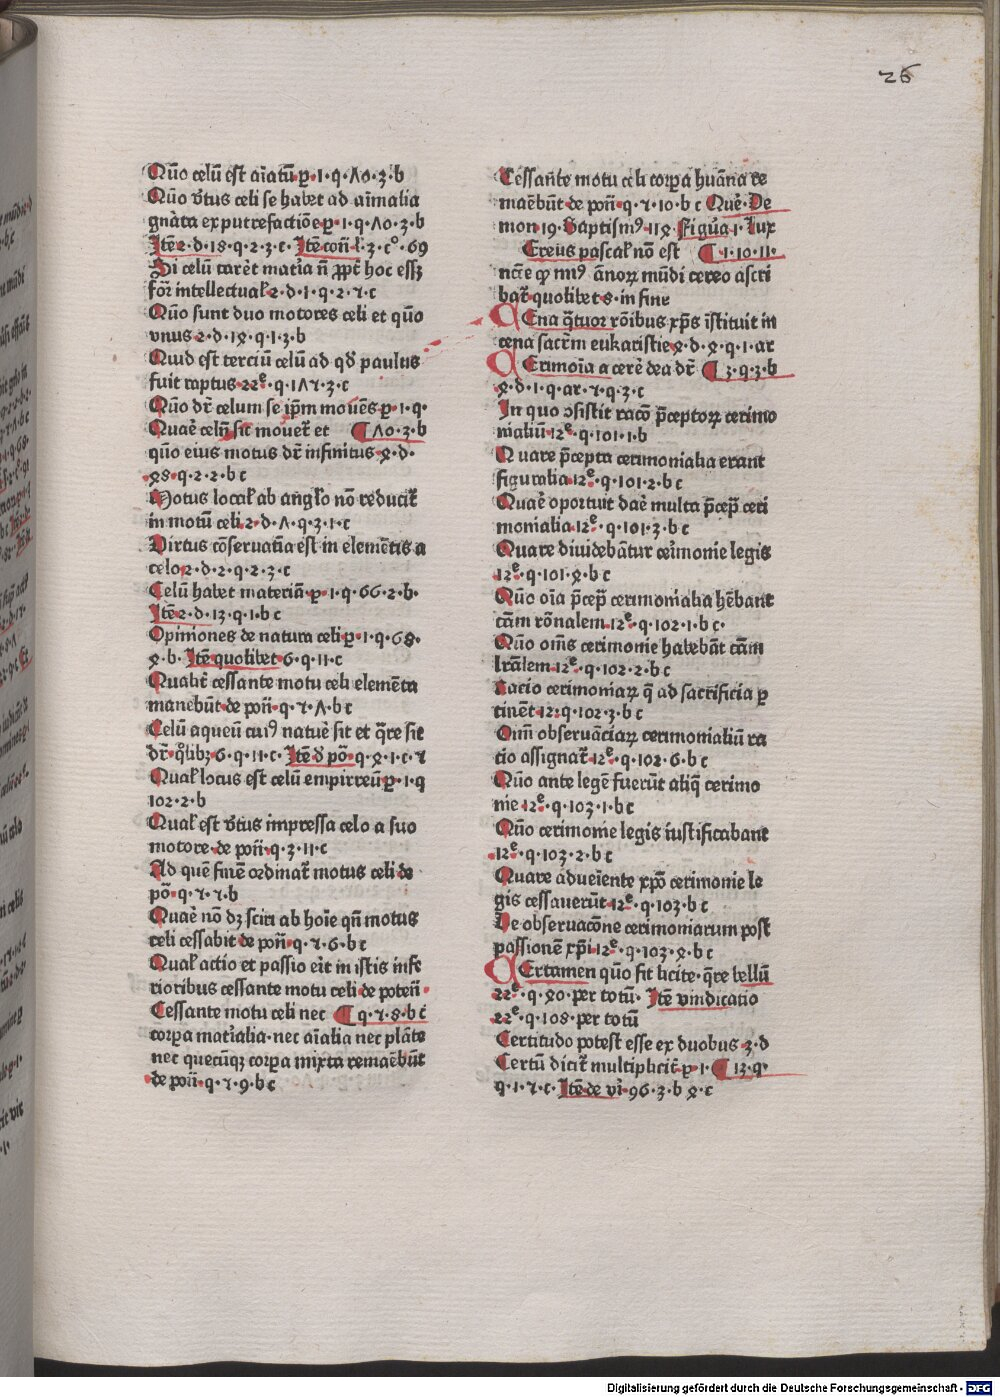 26
Quō celū est aīatū ꝑ·1·q·Λ0·3·b
Quō v̄tus celi se habet ad aīmalia
gnāta ex putrefactiōe ꝑ·1·q·Λ0·3·b
Itē 2·d·18·q·2·3·c· Itē con̄·l·3·c°·69
Si celū carēt mat'ia n̄ ꝓpt' hoc essꝫ
for̄ intellectual' 2·d·1·q·2·ɤ·c
Quō sunt duo motores celi et quō
vnus 2·d·1ꝯ·q·1·3·b
Quid est terciū celū ad qd̄ paulus
fuit raptus 22ͤ·q·1Λɤ·3·c
Quō dr̄ celum se ip̄m mouēs ꝑ·1·q·
Quaē celū sit mouet' et ¶ Λ0·3·b
quō eius motus dr̄ infinitus ꝯ·d·
ꝯ8·q·2·2·b c
Motus local' ab angl'o nō reducit'
in motū celi 2·d·Λ·q·3·1·c
Virtus cōseruatīa est in elemētis a
celo 2·d·2·q·2·3·c
Celū habet materiā ꝑ·1·q·66·2·b·
Itē 2·d·13·q·1·b c
Opiniones de natura celi ꝑ·1·q·68·
ꝯ·b· Itē quolibet 6·q·11·c
Qualit' cessante motu celi elemēta
manebūt de pon̄·q·ɤ·Λ·b c
Celū aqueū cuiꝰ natuē sit et q̄re sic
dr̄ q°libꝫ 6·q·11·c· Itē d' po̅·q·ꝯ·1·c·ɤ
Qual' locus est celū empirreū ꝑ·1·q
102·2·b
Qual' est v̄tus impressa celo a suo
motore de pon̄·q·3·11·c
Ad quē finē ordinat' motus celi de
po̅·q·ɤ·ɤ·b
Quaē nō dꝫ sciri ab hoīe qn̄ motus
celi cessabit de pon̄·q·ɤ·6·b c
Qual' actio et passio erit in istis infe
rioribus cessante motu celi de poten̄·
Cessante motu celi nec ¶ q·ɤ·8·b c
corpa mat'ialia·nec aīalia nec plāte
nec quecūqꝫ corpa mixta remaēbūt
de pon̄·q·ɤ·9·b c
Cessante motu celi corpa huāna re
maēbūt de pon̄·q·ɤ·10·b c Quē·De
mon 19·Baptismꝰ 11ꝯ Figura 1·Lux
Cereus pascal' nō est ¶·1·10·11·
ncīe qꝫ mꝰ ānoꝝ mūdi cereo ascri
bat' quolibet 8·in fine
Cena q̄tuor rōibus xp̄s īstituit in
cena sacr̄m eukaristie ꝯ·d·ꝯ·q·1·ar
Cerimoīa a cerē dea dr̄ ¶ 3·q·3·b
ꝯ·d·1·q·ar·ɤ·q·3·c
In quo ɔsistit raco̅ p̄ceptoꝝ cerimo
nialiū 12ͤ·q·101·1·b
Quare p̄cepta cerimonialia erant
figuralia 12ͤ·q·101·2·b c
Quaē oportuit daē multa p̄cep̄ ceri
monialia 12ͤ·q·101·3·b c
Quare diuidebātur ce'imonie legis
12ͤ·q·101·ꝯ·b c
Quō oīa p̄cep̄ cerimonialia hēbant
cām rōnalem 12ͤ·q·102·1·b c·
Quō om̄s cerimonie habebāt cām
lrālem 12ͤ·q·102·2·b c
Racio cerimoniaꝝ q̄ ad sacrificia ꝑ
tinēt 12·q·102·3·b c
Oīm obseruāciaꝝ cerimonialiū ra
tio assignat' 12ͤ·q·102·6·b c
Quō ante legē fuerūt aliq̄ cerimo
nie 12ͤ·q·103·1·b c
Quō cerimonie legis iustificabant
12ͤ·q·103·2·b c
Quare adueīente xp̄o cerimonie le
gis cessauerūt 12ͤ·q·103·b c
De obseruacōne cerimoniarum post
passionē xp̄i 12ͤ·q·103·ꝯ·b c
Certamen quō fit licite·q̄re bellū
22ͤ·q·ꝯ0·per totū· Itē vindicatio
22ͤ·q·108·per totū
Certitudo potest esse ex duobus 3·d
Certū dicit' multiplicit' ꝑ·1·¶ 13·q·
q·1·ɤ·c· Itē de vi'·96·3·b ꝯ·c
Digitalisierung gefördert durch die Deutsche Forschungsgemeinschaft - DFG